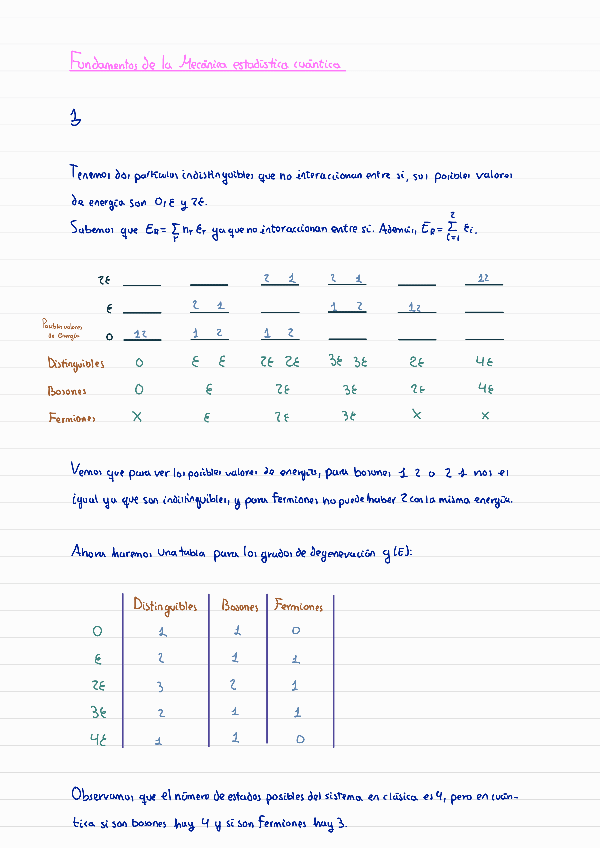 Fundamentos de la Mecánica estadística cuántica
1
Tenemos dos partículas indistinguibles que no interaccionan entre sí, sus posibles valores
de energía son 0, ε y 2ε.
Sabemos que E_R = Σ_r n_r ε_r ya que no interaccionan entre sí. Además, E_R = Σ_{i=1}^{2} ε_i.
2ε 2 1 2 1 12
ε 2 1 1 2 12
Posibles valores
de Energía 0 12 1 2 1 2
Distinguibles 0 ε ε 2ε 2ε 3ε 3ε 2ε 4ε
Bosones 0 ε 2ε 3ε 2ε 4ε
Fermiones X ε 2ε 3ε X X
Vemos que para ver los posibles valores de energías, para bosones 1 2 o 2 1 nos es
igual ya que son indistinguibles, y para fermiones no puede haber 2 con la misma energía.
Ahora haremos una tabla para los grados de degeneración g(E):
Distinguibles Bosones Fermiones
0 1 1 0
ε 2 1 1
2ε 3 2 1
3ε 2 1 1
4ε 1 1 0
Observamos que el número de estados posibles del sistema en clásica es 4, pero en cuán-
tica si son bosones hay 4 y si son fermiones hay 3.